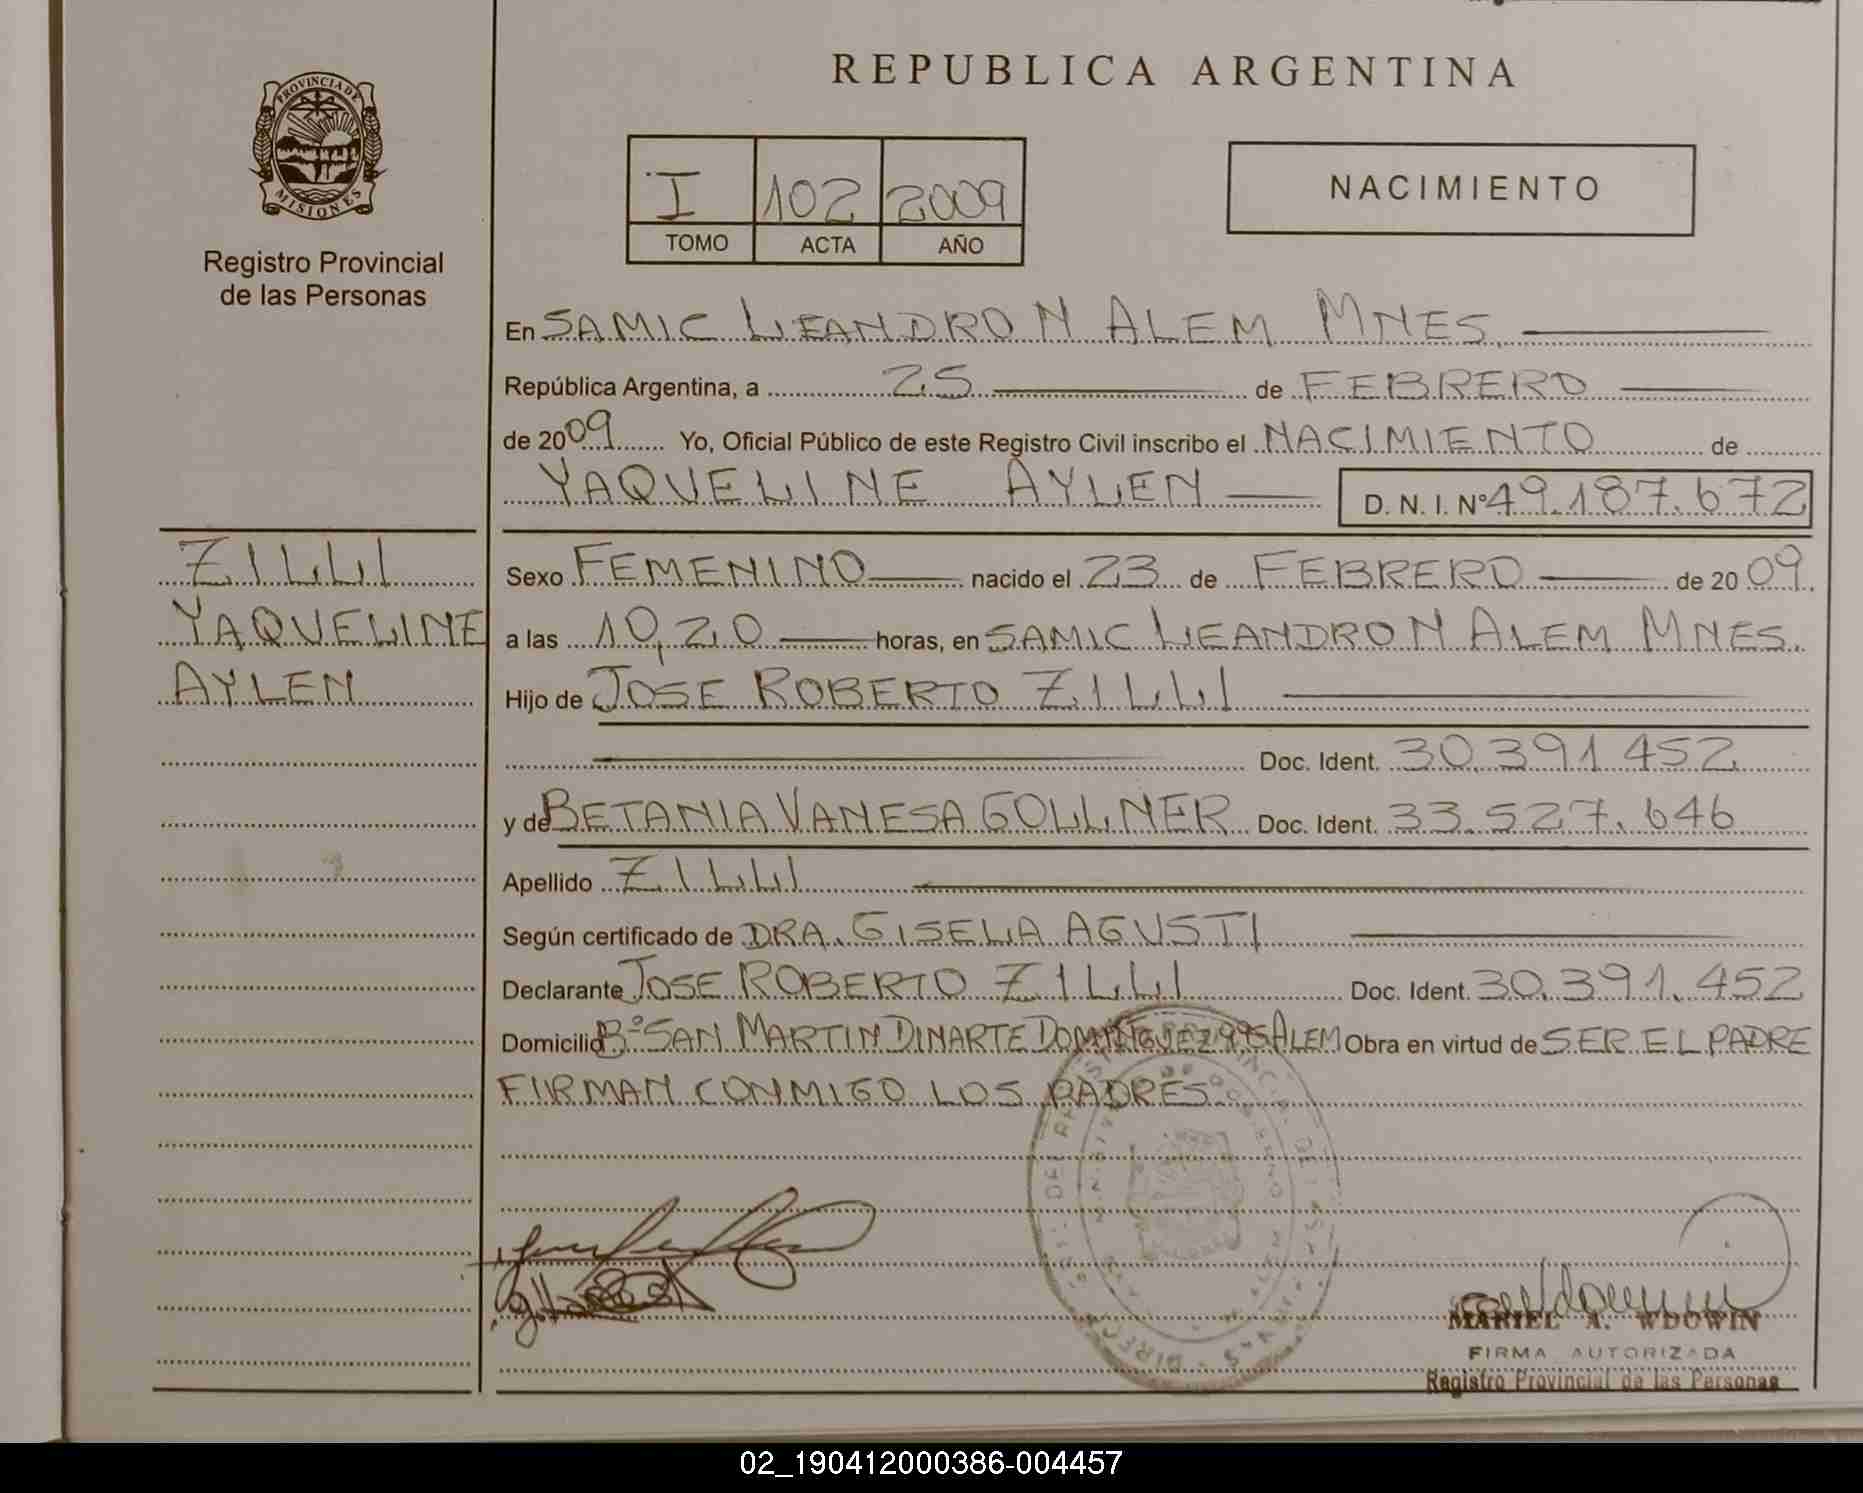 REPUBLICA ARGENTINA
PROVINCIA DE
MISIONES
Registro Provincial
de las Personas
I 102 2009
TOMO ACTA AÑO
NACIMIENTO
En SAMIC LEANDRO N ALEM MNES.
República Argentina, a 25 de FEBRERO
de 2009 Yo, Oficial Público de este Registro Civil inscribo el NACIMIENTO de
YAQUELINE AYLEN D. N. I. Nº 49.187.672
ZILLI
YAQUELINE
AYLEN
Sexo FEMENINO nacido el 23 de FEBRERO de 2009
a las 10,20 horas, en SAMIC LEANDRO N ALEM MNES.
Hijo de JOSE ROBERTO ZILLI
Doc. Ident. 30.391.452
y de BETANIA VANESA GOLLNER Doc. Ident. 33.527.646
Apellido ZILLI
Según certificado de DRA. GISELA AGUSTI
Declarante JOSE ROBERTO ZILLI Doc. Ident. 30.391.452
Domicilio Bº SAN MARTIN DINARTE DOMINGUEZ 995 ALEM Obra en virtud de SER EL PADRE
FIRMAN CONMIGO LOS PADRES.
MARIEL A. WDOWIN
FIRMA AUTORIZADA
Registro Provincial de las Personas
02_190412000386-004457